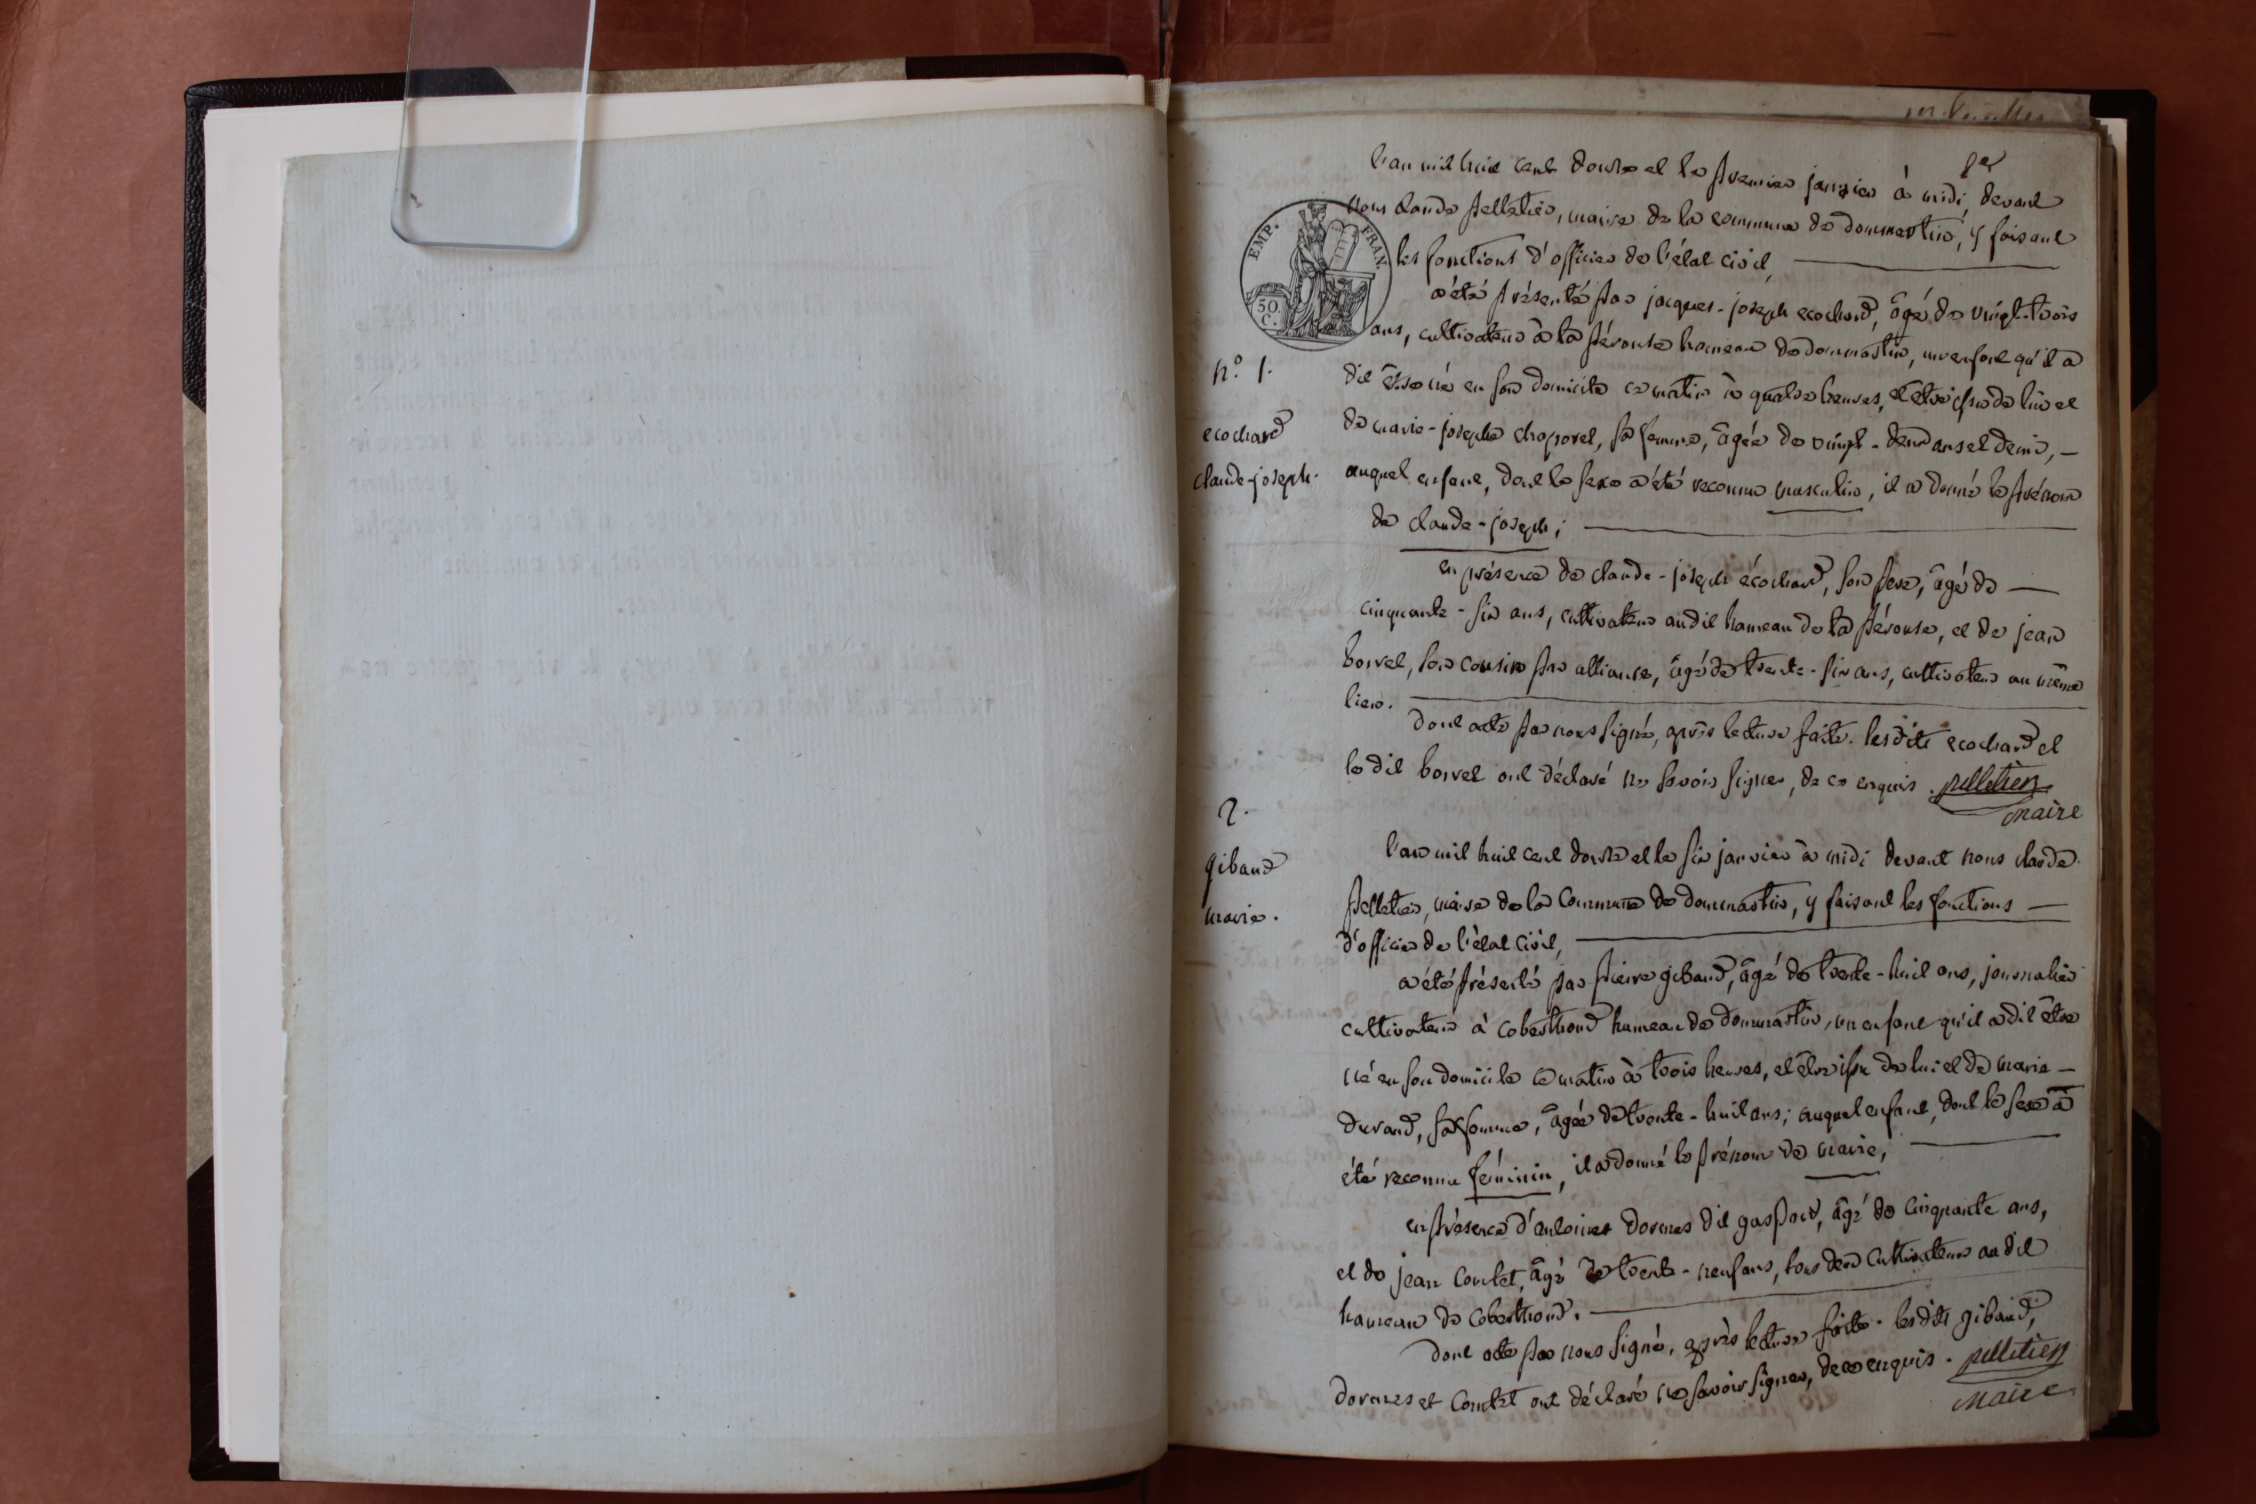 1er
l'an mil huit cent douze et le premier janvier à midi, devant
nous claude pelletier, maire de la commune de dommartin, y faisant
EMP. FRAN.
les fonctions d'officier de l'état civil,
50. C.
a été présenté par jacques-joseph ecochard, âgé de vingt-trois
ans, cultivateur à la pérouse hameau de dommartin, un enfant qu'il a
n.° 1.
dit être né en son domicile ce matin à quatre heures, et être issu de lui et
ecochard
de marie-josephe chaporel, sa femme, âgée de vingt-deux ans et demi,
claude-joseph.
auquel enfant, dont le sexe a été reconnu masculin, il a donné le prénom
de claude-joseph;
en présence de claude-joseph écochard, son père, âgé de
cinquante-six ans, cultivateur au dit hameau de la pérouse, et de jean
borvel, son cousin par alliance, âgé de trente-six ans, cultivateur au même
lieu.
dont acte par nous signé, après lecture faite. les dits ecochard et
le dit borvel ont déclaré ne savoir signer, de ce enquis. pelletier
maire
2.
l'an mil huit cent douze et le six janvier à midi devant nous claude
gibaud
pelletier, maire de la commune de dommartin, y faisant les fonctions
marie.
d'officier de l'état civil,
a été présenté par pierre gibaud, âgé de trente-huit ans, journalier
cultivateur à cobesthoud hameau de dommartin, un enfant qu'il a dit être
né en son domicile ce matin à trois heures, et être issu de lui et de marie
durand, sa femme, âgée de trente-huit ans; auquel enfant, dont le sexe a
été reconnu féminin, il a donné le prénom de marie,
en présence d'antoine dormes dit gaspard, âgé de cinquante ans,
et de jean comtet, âgé de trente-neuf ans, tous deux cultivateurs au dit
hameau de cobesthoud.
dont acte par nous signé, après lecture faite. les dits gibaud,
dormes et comtet ont déclaré ne savoir signer, de ce enquis. pelletier
maire